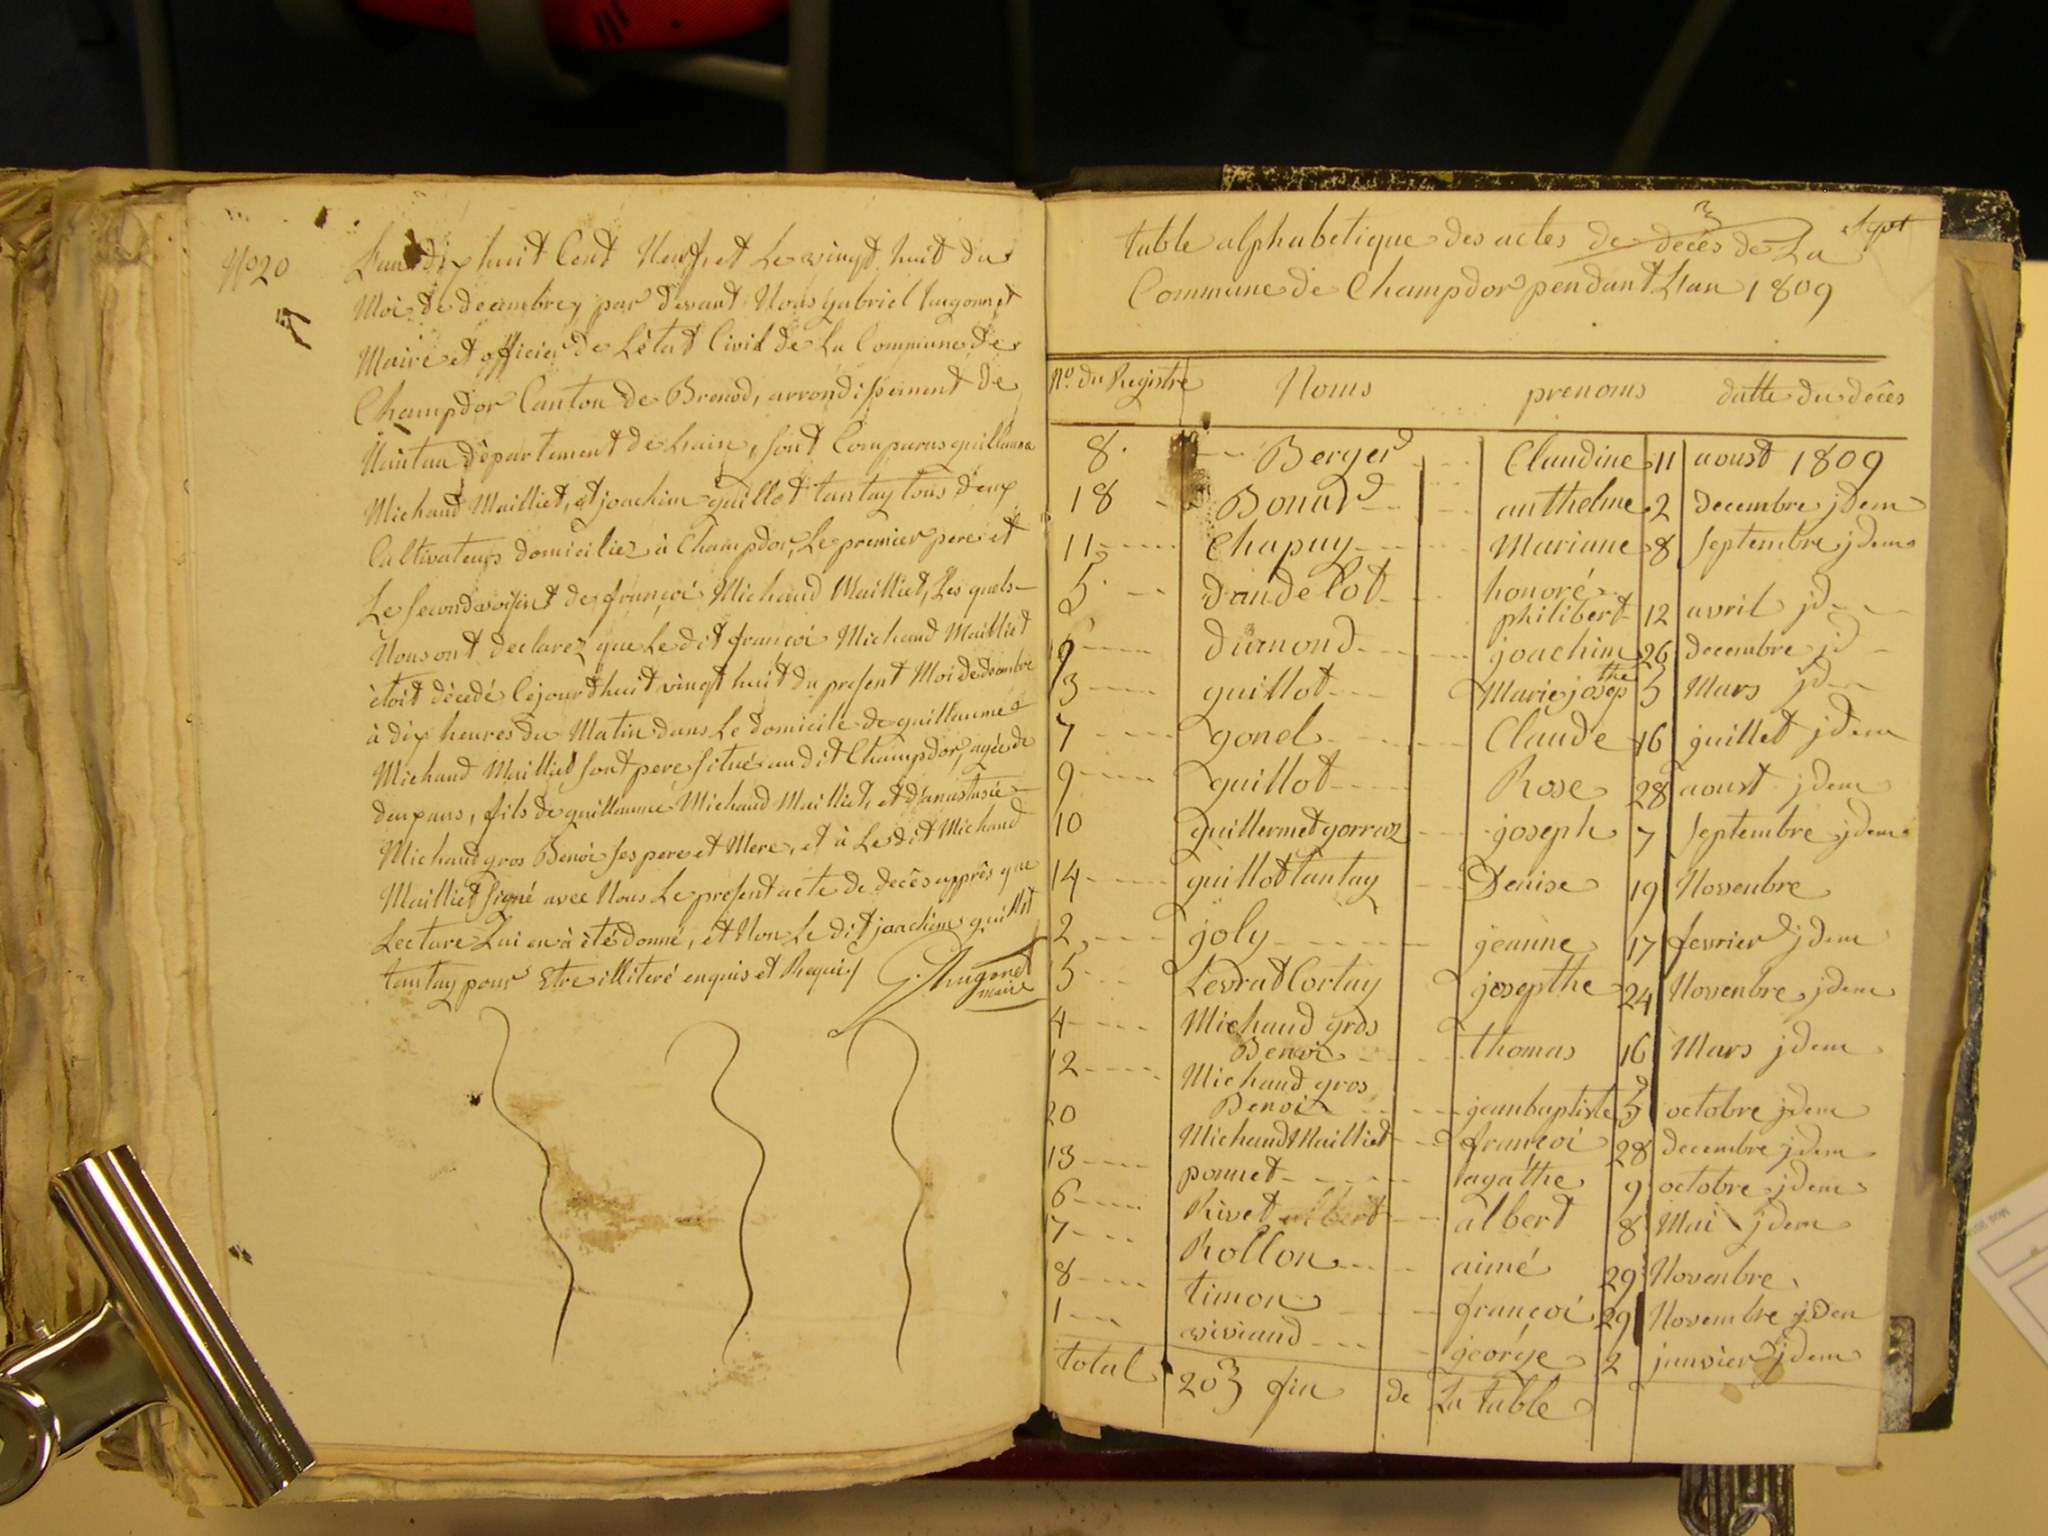 No 20
L'an dix huit Cent Neuf, et Le vingt huit du
Moi de decembre, par devant Nous gabriel
Maire et officier de L'état Civil de La Commune de
Champdor Canton de Brenod, arrondissement de
Nantua département de Lain, sont Comparus guillaume
Michaud Mailliet, et joachim guillot tantay tous deux
Cultivateurs domiciliez à Champdor, Le premier pere et
Le second voisint de françoi Michaud Mailliet, Les quels
Nous ont declarez que Le dit françoi Michaud Mailliet
étoit décédé Cejourdhuit vingt huit du present Moi de decembre
à dix heures du Matin dans Le domicile de guillaume
Michaud Mailliet sont pere situé au dit Champdor, agée de
deux ans, fils de guillaume Michaud Mailliet, et d'anastasie
Michaud gros Benoi ses pere et Mere, et à Le dit Michaud
Mailliet signé avec Nous Le present acte de decès apprês que
Lecture Lui en à été donné, et Non Le dit joachim guillot
tantay pour Etre illiteré enquis et Requis
maire
table alphabetique des actes de decès de La
Commune de Champdor pendant L'an 1809
No. du Registre Noms prenoms datte du décès
8 Berger Claudine 11 aoust 1809
18 Bonard anthelme 2 decembre jdem
11 Chapuy Mariane 8 septembre jdem
5 dandelot honoré
philibert 12 avril jd
dumond joachim 26 decembre jd
3 guillot Marie josepthe 5 Mars jd
7 gonel Claude 16 juillet jdem
9 guillot Rose 28 aoust jdem
10 guillermet gorraz joseph 7 septembre jdem
14 guillot tantay Denise 19 Novenbre
2 joly jeanne 17 fevrier jdem
15 Levrat Cortay josepthe 24 Novenbre jdem
4 Michaud gros
Benoi thomas 16 Mars jdem
12 Michaud gros
Benoi jean baptiste 5 octobre jdem
20 Michaud Mailliet françoi 28 decembre jdem
13 ponnet agathe 9 octobre jdem
6 Rivet albert 8 Mai jdem
17 Rollon aimé 29 Novenbre
18 timon françoi 29 Novembre jdem
1 viviand george 2 janvier jdem
total 203 fin de La table